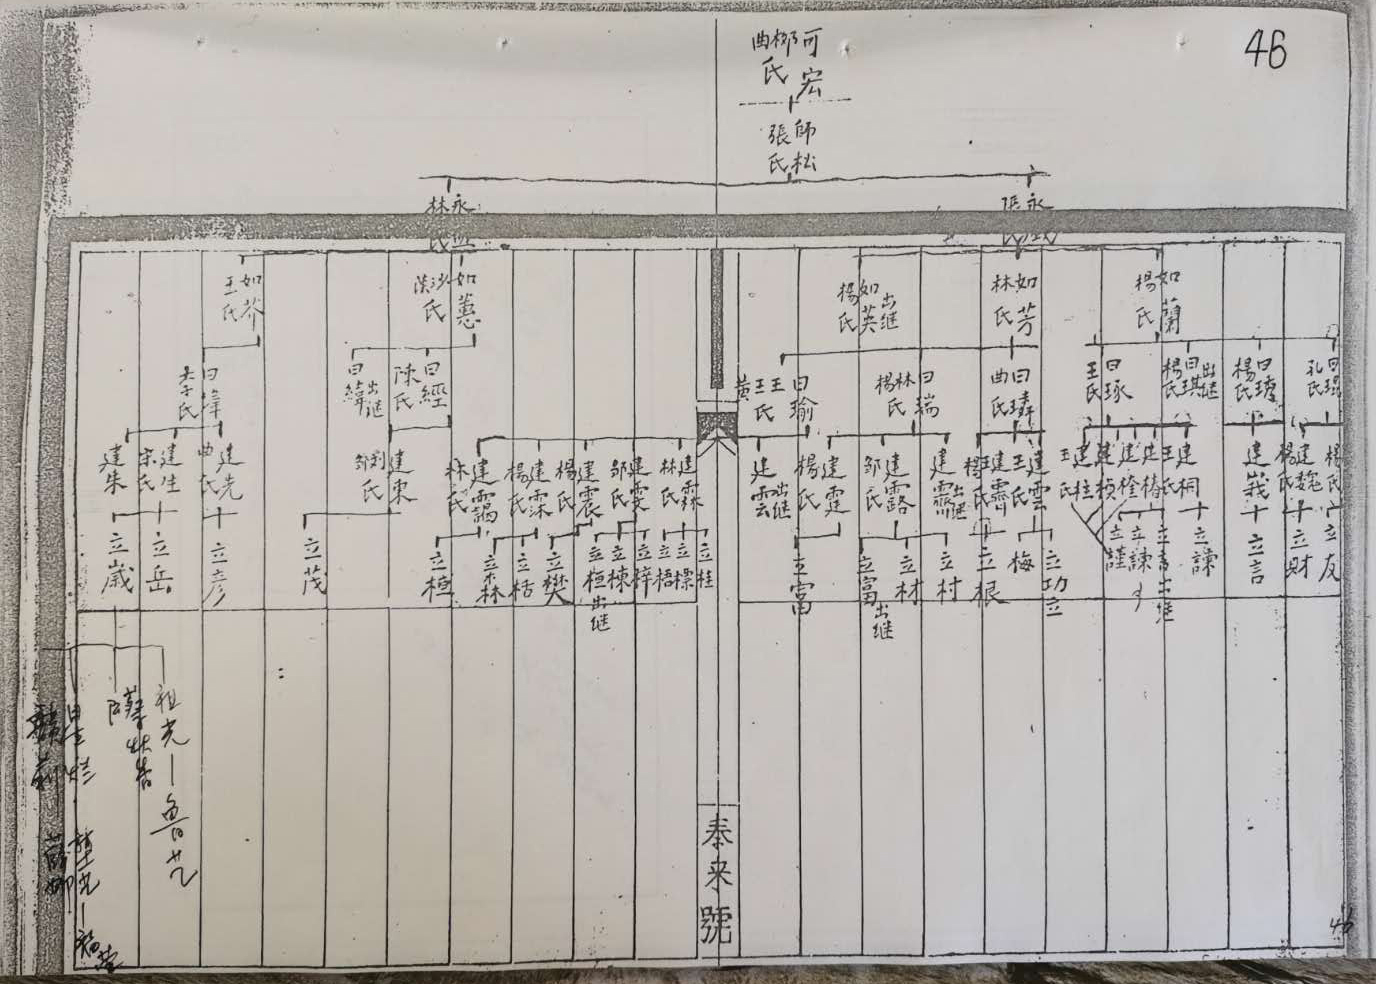 46
可宏
柳曲氏
師松
張氏
永
張
永
林
如蘭
楊氏
如芳
林氏
如英
出继
楊氏
如蕙
氏
如芥
王氏
曰琨
孔氏
曰瓊
楊氏
曰琪
出继
楊氏
曰琢
王氏
曰璋
曲氏
曰瑞
林楊氏
曰瑜
王王黄氏
曰經
陳氏
曰緯
出继
曰禕
氏
楊氏
建巍
楊氏
建峩
建桐
王氏
建椿
建橙
建楨
建柱
王氏
建雲
王氏
建霽
建霽
出继
建露
邹氏
建霆
楊氏
建雲
出继
建霖
林氏
建雯
邹氏
建震
楊氏
建霂
楊氏
建靄
林氏
建東
劉邹氏
建先
曲氏
建生
宋氏
建朱
立友
立財
立言
立諫
立言
出继
立諫
立謹
立功
立
梅
立根
立村
立材
立富
出继
立富
立桂
立標
立梧
立梓
立棟
立桓
出继
立樊
立栝
立森
立桓
立茂
立彦
立岳
立嵗
祖光
魯艺
泰来號
46